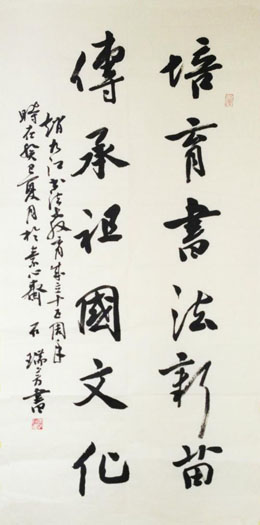 培育書法新苗
傳承祖國文化
九江書法教育成立十五周年
時在癸巳夏月於素心齋 石瑞芳書